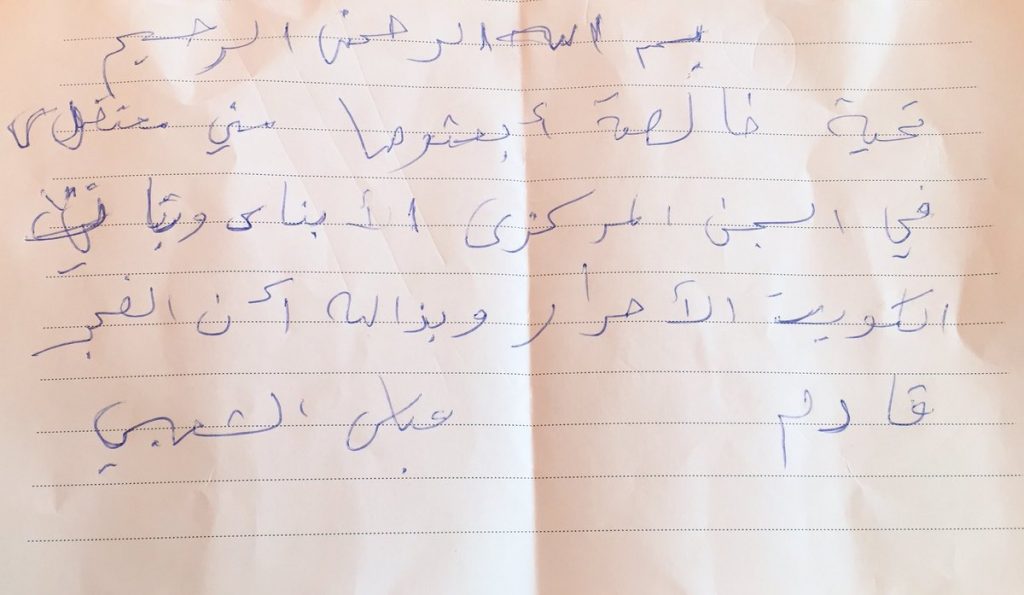 بسم الله الرحمن الرحيم
تحية خالصة أبعثوها مني معتقلي
في السجن المركزي الأبناء وبنات
الكويت الأحرار وبذالله أن الفجر
قادم عباس الشعبي